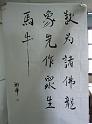 欲為諸佛龍
象先作眾生
馬牛